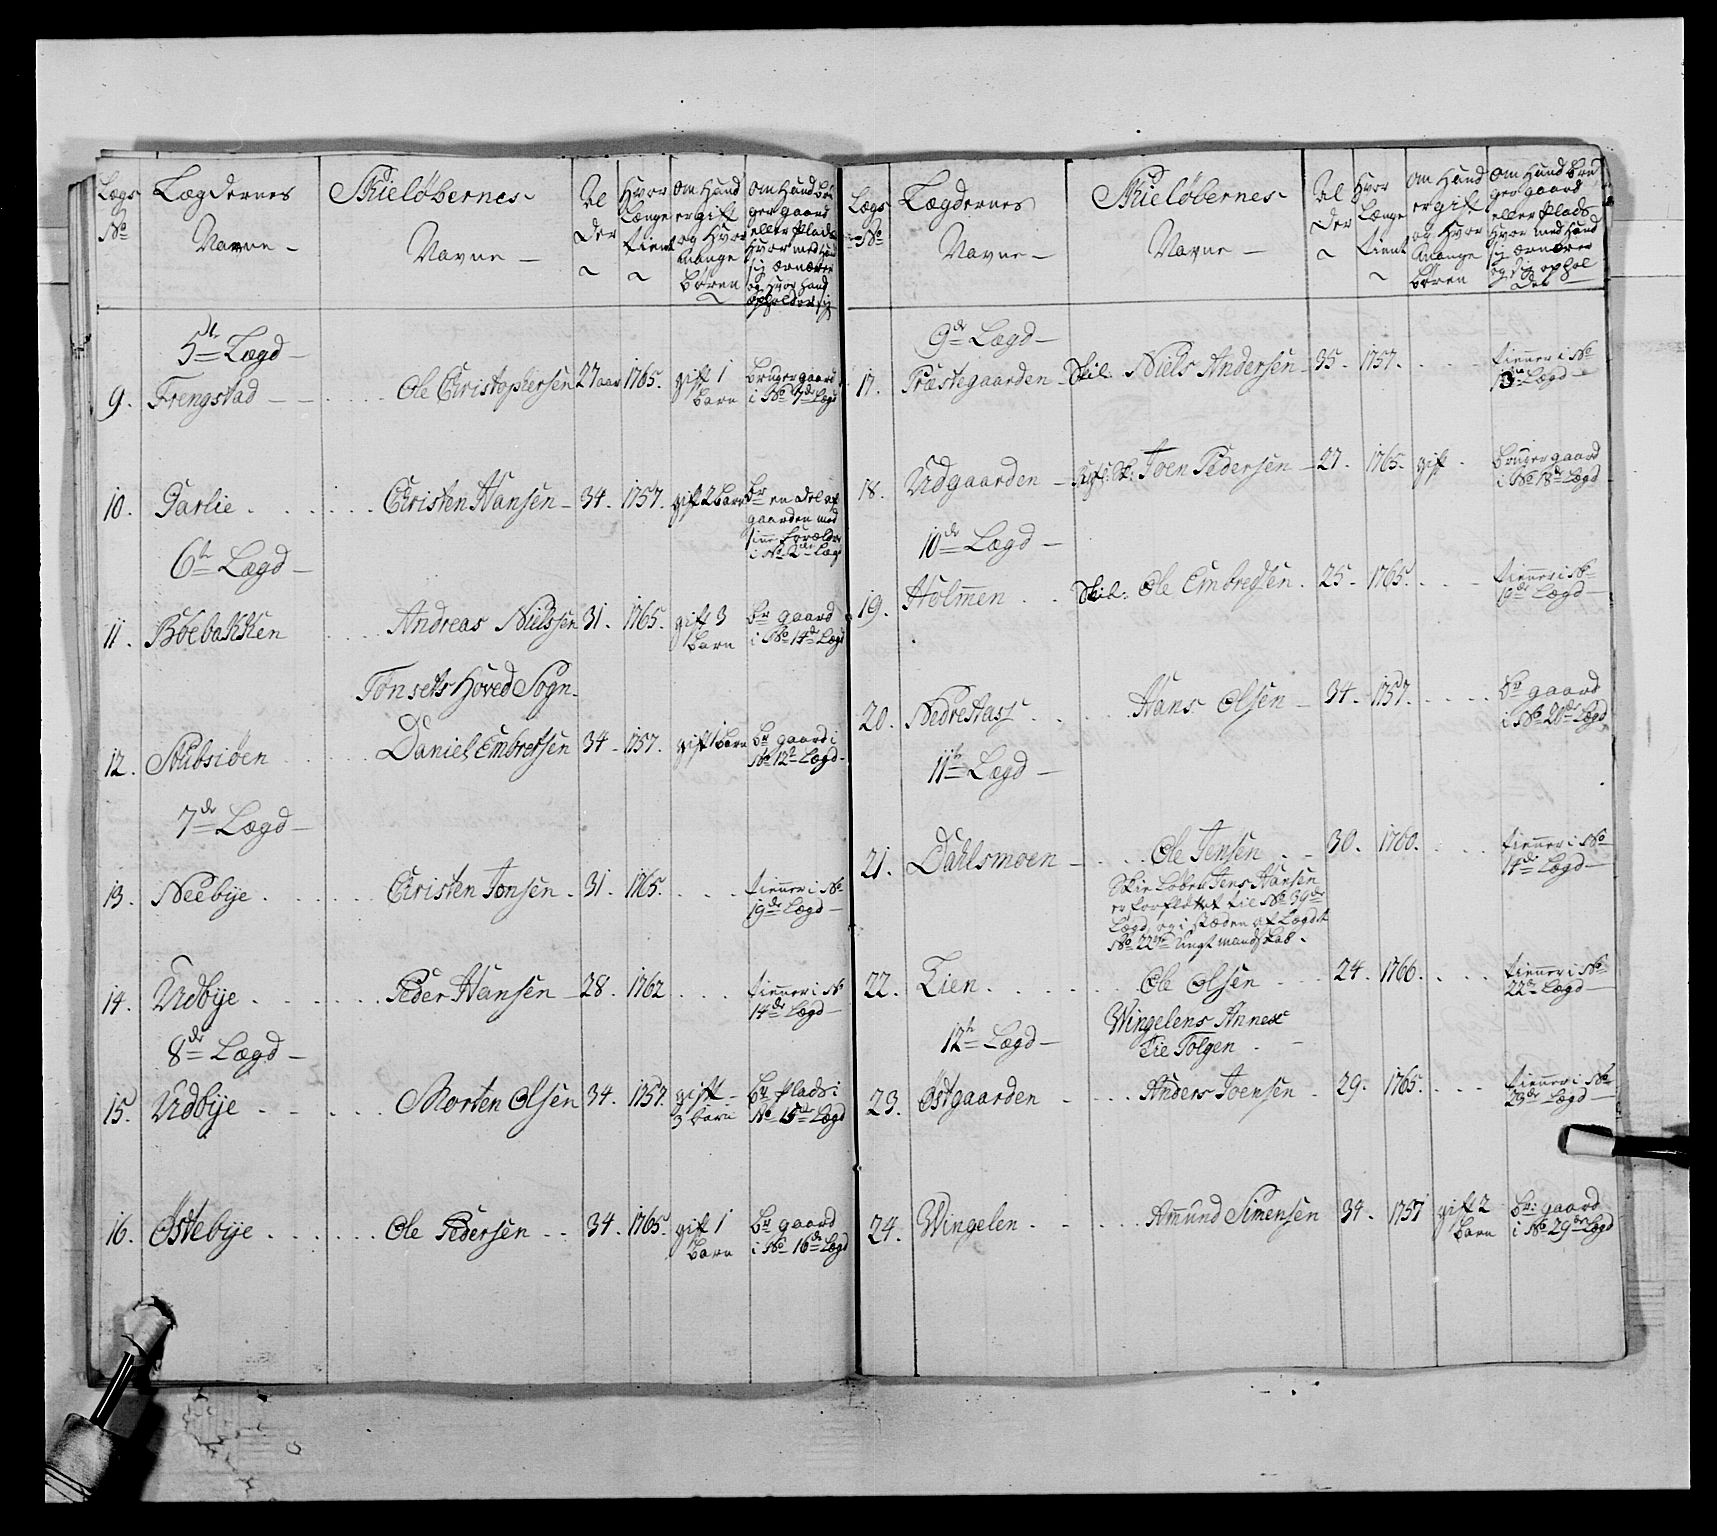 Lægs No
Lægdernes Navne
Skieløbernes Navne
Al der
Hvor Længe tient
om Hand er gift og Hvor mange børen
om Hand bruger gaard eller Plads Hvor med Hand sig ærnærer og Hvor Hand opholder sig
5te Lægd
9. Frengstad Ole Christophersen 27 aar 1765. gift 1 barn bruger gaard i No 7de Lægd
10. Parlie Christen Hansen 34. 1757. gift 2 barn br en del af gaarden med sine Forældre i No 2den Lægd
6te Lægd
11. Böebakken Andreas Nielssen 31. 1765. gift 3 barn br gaard i No 14de Lægd
Tönsets Hoved Sogn
12. Stubsiöen Daniel Embretsen 34. 1757. gift 1 barn br gaard i No 12te Lægd
7de Lægd
13. Neebÿe Christen Jonsen 31. 1765. tienner i No 19de Lægd
14. Udbÿe Peder Hansen 28. 1762 tienner i No 14de Lægd
8de Lægd
15. Udbÿe Morten Olsen 34. 1757. gift 3 barn br Plads i No 15de Lægd
16. Östebÿe Ole Pedersen 34. 1765. gift 1 barn br gaard i No 16de Lægd
Lægs No
Lægdernes Navne
Skieløbernes Navne
Al der
Hvor Længe tient
om Hand er gift og Hvor mange börn
om Hand bruger gaard eller Plads Hvor med Hand sig ærnærer og sig ophol der
9de Lægd
17. Præstegaarden Skil. Niels Andersen 35. 1757. tienner i No Lægd
18. Udgaarden Joen Pedersen 27. 1765. gift bruger gaard i No 18de Lægd
10de Lægd
19. Holmen Skil: Ole Embretsen 25. 1765. tienner i No Lægd
20. Nedrestast Hans Olsen 34. 1757. br gaard i No Lægd
11te Lægd
21. Dahlsmoen Ole Jensen 30. 1760. tienner i No 14de Lægd
Skie Løber Jens Hansen
er forflöttet til No 39de
Lægd, og i stæden af Lægdet
No 22de ungt mandskab.
22. Lien Ole Olsen 24. 1766. tienner i No 22de Lægd
12te Lægd
Wingelens Annex
Til Tolgen
23. Östgaarden Anders Joensen 29. 1765. tienner i No 23de Lægd
24. Wingelen Amund Simensen 34. 1757 gift 2 barn br: gaard i No 29de Lægd